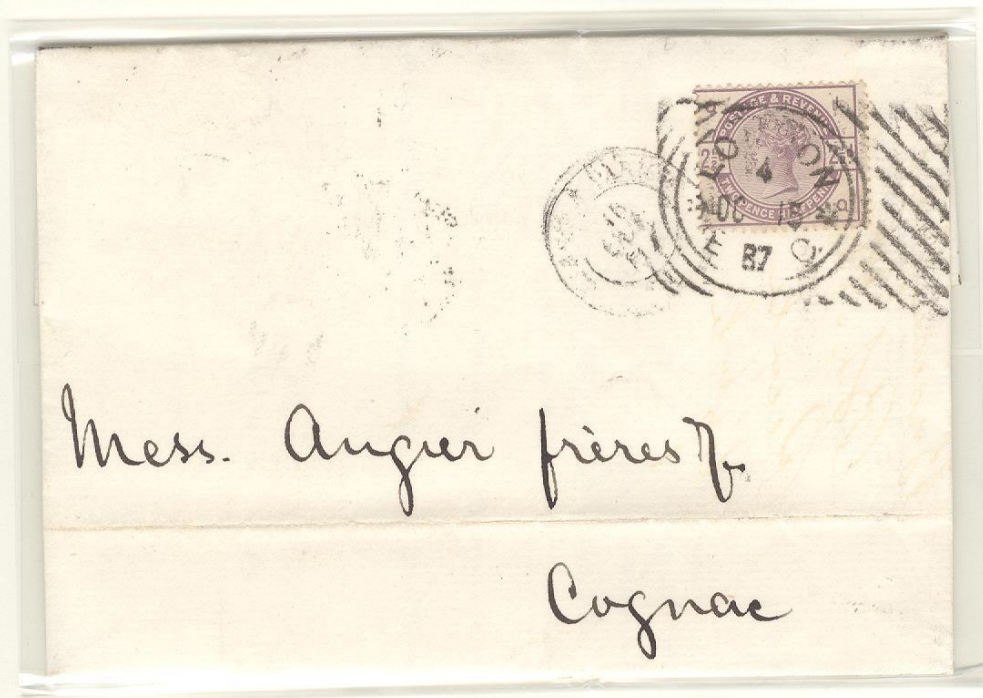 POSTAGE & REVENUE
2½D 2½D
LONDON
4
OC 15
87
E C
Mess. Augier frères
Cognac